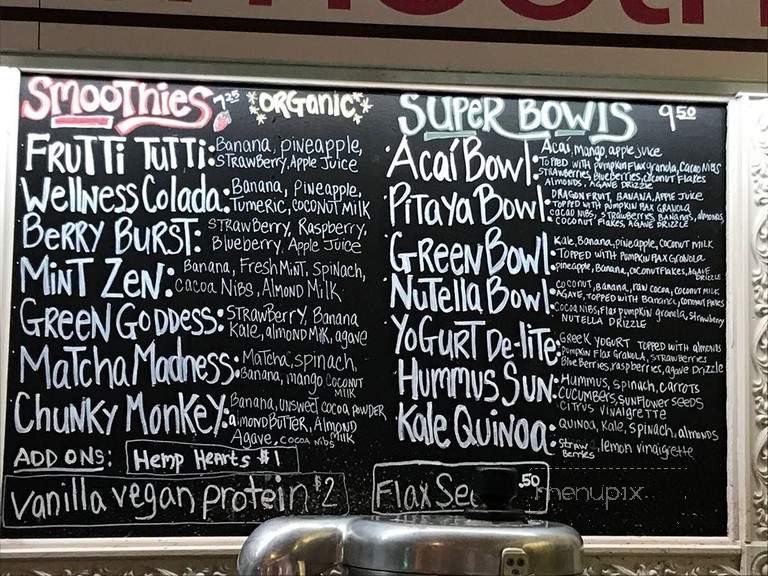 SMOOTHIES 7.25 *ORGANIC*
FRUTTI TUTTI: Banana, pineapple,
STRAWBerry, Apple Juice
Wellness Colada: Banana, Pineapple,
Tumeric, coconut milk
BERRY BURST: STRAWBerry, Raspberry,
Blueberry, Apple Juice
MINT ZEN: Banana, Fresh Mint, Spinach,
Cacoa Nibs, Almond Milk
GREEN GODDESS: STRAWBerry, Banana
Kale, almond Milk, agave
MaTcha Madness: Matcha, spinach,
Banana, mango coconut
milk
CHUNKY MONKEY: Banana, unsweet cocoa powder
almond Butter, Almond
Milk
Agave, cocoa nibs
ADD ONS: Hemp Hearts $1
Vanilla vegan protein $2
SUPER BOWLS 9.50
Acaí Bowl: Acai, Mango, apple juice
Topped with pumpkin Flax granola, Cacao Nibs
Strawberries, Blueberries, coconut Flakes
Almonds, AGAVE DRIZZLE
PITAYA BOWL: DRAGON FRUIT, BANANA, APPLE JUICE
TOPPED WITH PUMPKIN FLAX GRANOLA
cacao nibs, strawberries, Bananas, almonds,
coconut flakes, AGAVE DRIZZLE
GREEN BOWL: Kale, Banana, pineapple, coconut milk
TOPPED WITH PUMPKIN FLAX Granola
pineapple, Banana, coconut Flakes, AGAVE
DRIZZLE
NUTELLA BOWL: Coconut, Banana, raw cocoa, coconut milk
AGAVE, TOPPED WITH Bananas, coconut Flakes
Cocoa Nibs, Flax pumpkin granola, Strawberry
NUTELLA DRIZZLE
YOGURT De-liTe: Greek YOGURT TOPPED with almonds
Pumpkin Flax Granola, STRAWBerries
Blue Berries, raspberries, agave Drizzle
HUMMUS SUN: Hummus, spinach, carrots
CUCUMBERS, SUNFlower seeds
CITRUS VINAIGRETTE
KALE QUINOA: Quinoa, Kale, spinach, almonds
Straw Berries, lemon vinaigrette
Flax .50
menupix